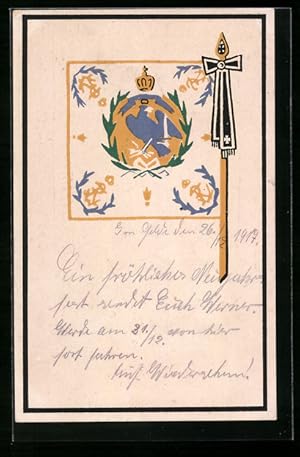 Im Felde den 26./12. 1917.
Ein fröhliches Neujahrs-
fest sendet Euch Werner.
Werde am 31./12. von hier
fort fahren.
Auf Wiedersehen!